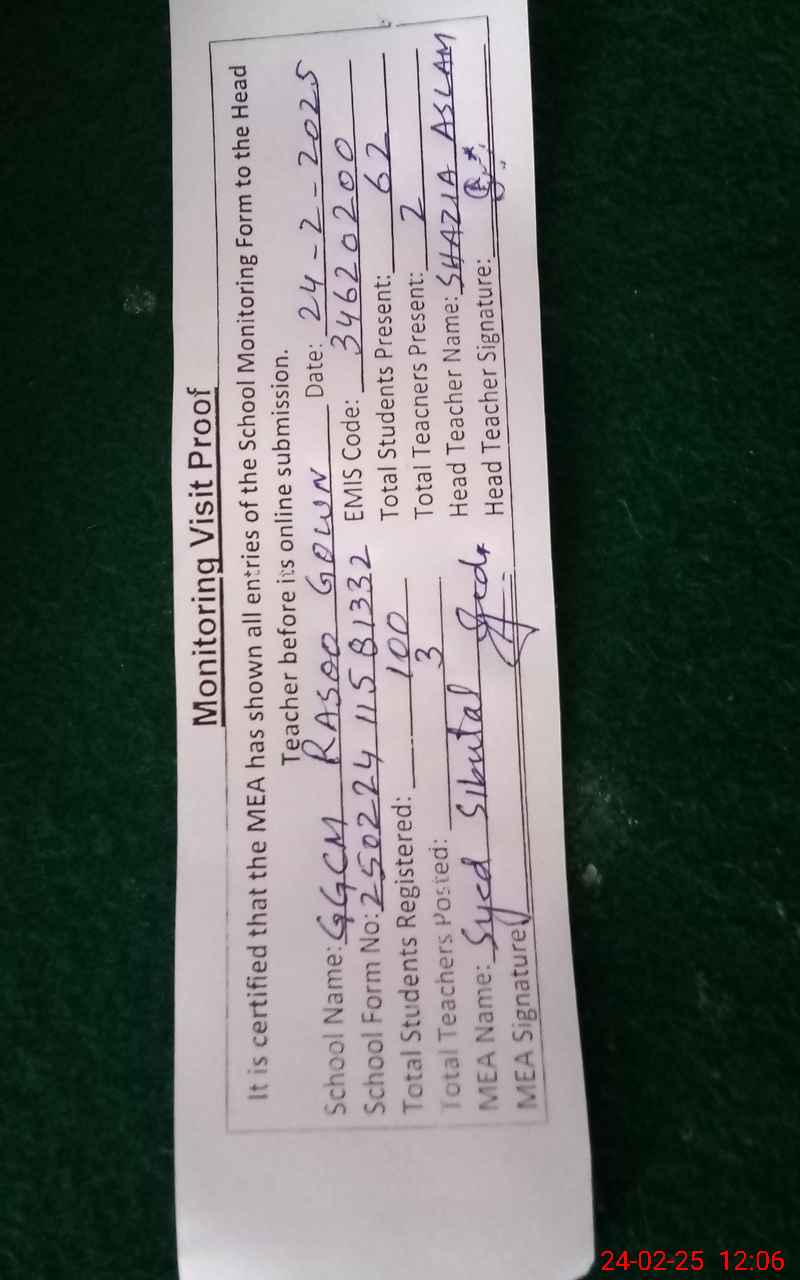 Monitoring Visit Proof
It is certified that the MEA has shown all entries of the School Monitoring Form to the Head
Teacher before its online submission.
School Name: GGCM RASOO GOWN Date: 24-2-2025
School Form No: 250224 115 81332 EMIS Code: 34620200
Total Students Registered: 100 Total Students Present: 62
Total Teachers Posted: 3 Total Teacners Present: 2
MEA Name: Syed Sibutal Head Teacher Name: SHAZIA ASLAM
MEA Signature Head Teacher Signature:
24-02-25 12:06